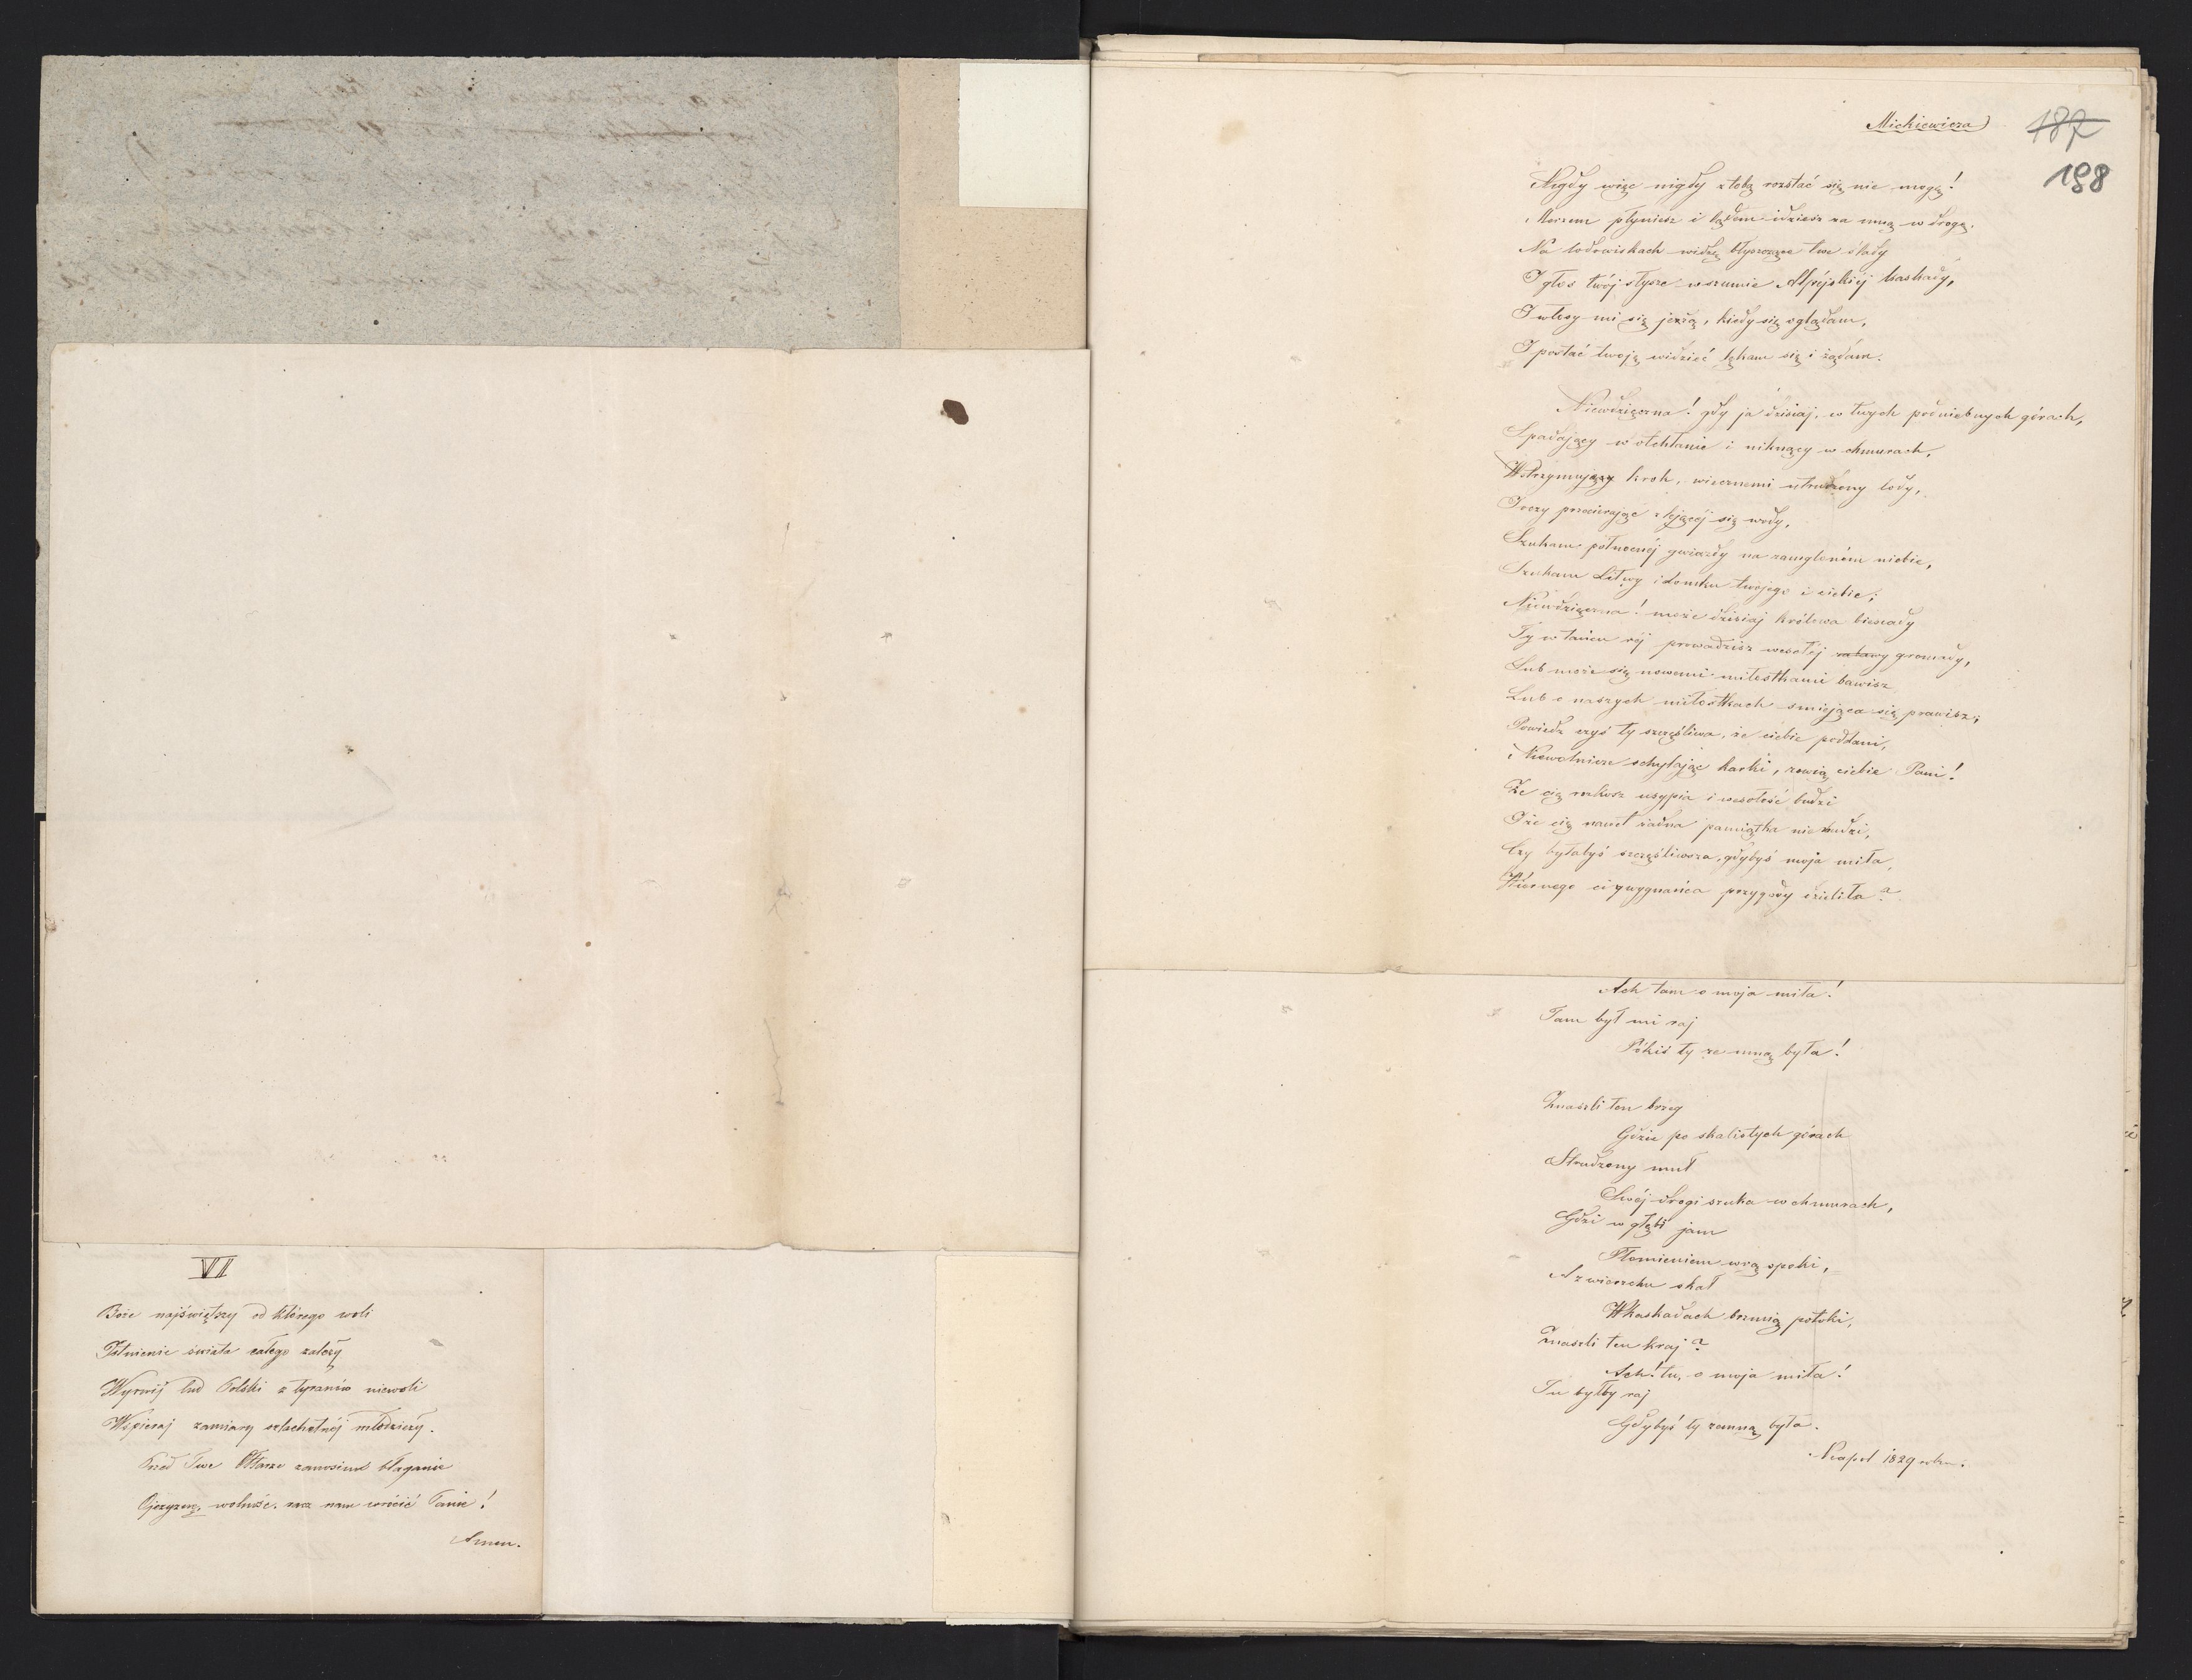 VI
Boże najświętszy od którego woli
Istnienie świata całego zależy
Wyrwij lud Polski z tyranów niewoli
Wspieraj zamiary szlachetnéj młodzieży.
Przed Twe Ołtarze zanosim błaganie
Ojczyznę, wolność, racz nam wrócić Panie!
Amen.
Mickiewicza
187
198
Nigdy więc nigdy z tobą rozstać się nie mogę!
Morzem płyniesz i lądem idziesz za mną w drogę.
Na lodowiskach widzę błyszczące twe ślady
I głos twój słyszę w szumie Alpéjskiéj kaskady,
I włosy mi się jeżą, kiedy się oglądam,
I postać twoję widzieć lękam się i żądam.
Niewdzięczna! gdy ja dzisiaj, w tych podniebnych górach,
Spadający w otchłanie i niknący w chmurach,
Wstrzymujący krok, wiecznemi utrudzony lody,
I oczy przecierając z lejącéj się wody,
Szukam północnéj gwiazdy na zamgloném niebie,
Szukam Litwy i domku twojego i ciebie;
Niewdzięczna! może dzisiaj królowa biesiady
Ty w tańcu rój prowadzisz wesołéj gromady,
Lub może się nowemi miłostkami bawisz
Lub o naszych miłostkach śmiejąca się prawisz;
Powiedz czyś ty szczęśliwa, że ciebie poddani,
Niewolnicze schylając karki, zowią ciebie Pani!
Że cię rozkosz usypia i wesołość budzi
I że cię nawet żadna pamiątka nie nudzi,
Czy byłabyś szczęśliwsza, gdybyś moja miła,
Wiernego ci wygnańca przygody dzieliła?
Ach tam o moja miła!
Tam był mi raj
Pókiś ty ze mną była!
Znaszli ten brzeg
Gdzie po skalistych górach
Strudzony muł
Swéj drogi szuka w chmurach,
Gdzi w głębi jam
Płomieniem wrą opoki,
A z wierzchu skał
W kaskadach brzmią potoki,
Znaszli ten kraj?
Ach! tu, o moja miła!
Tu byłby raj
Gdybyś ty zemną była.
Neapol 1829 roku.